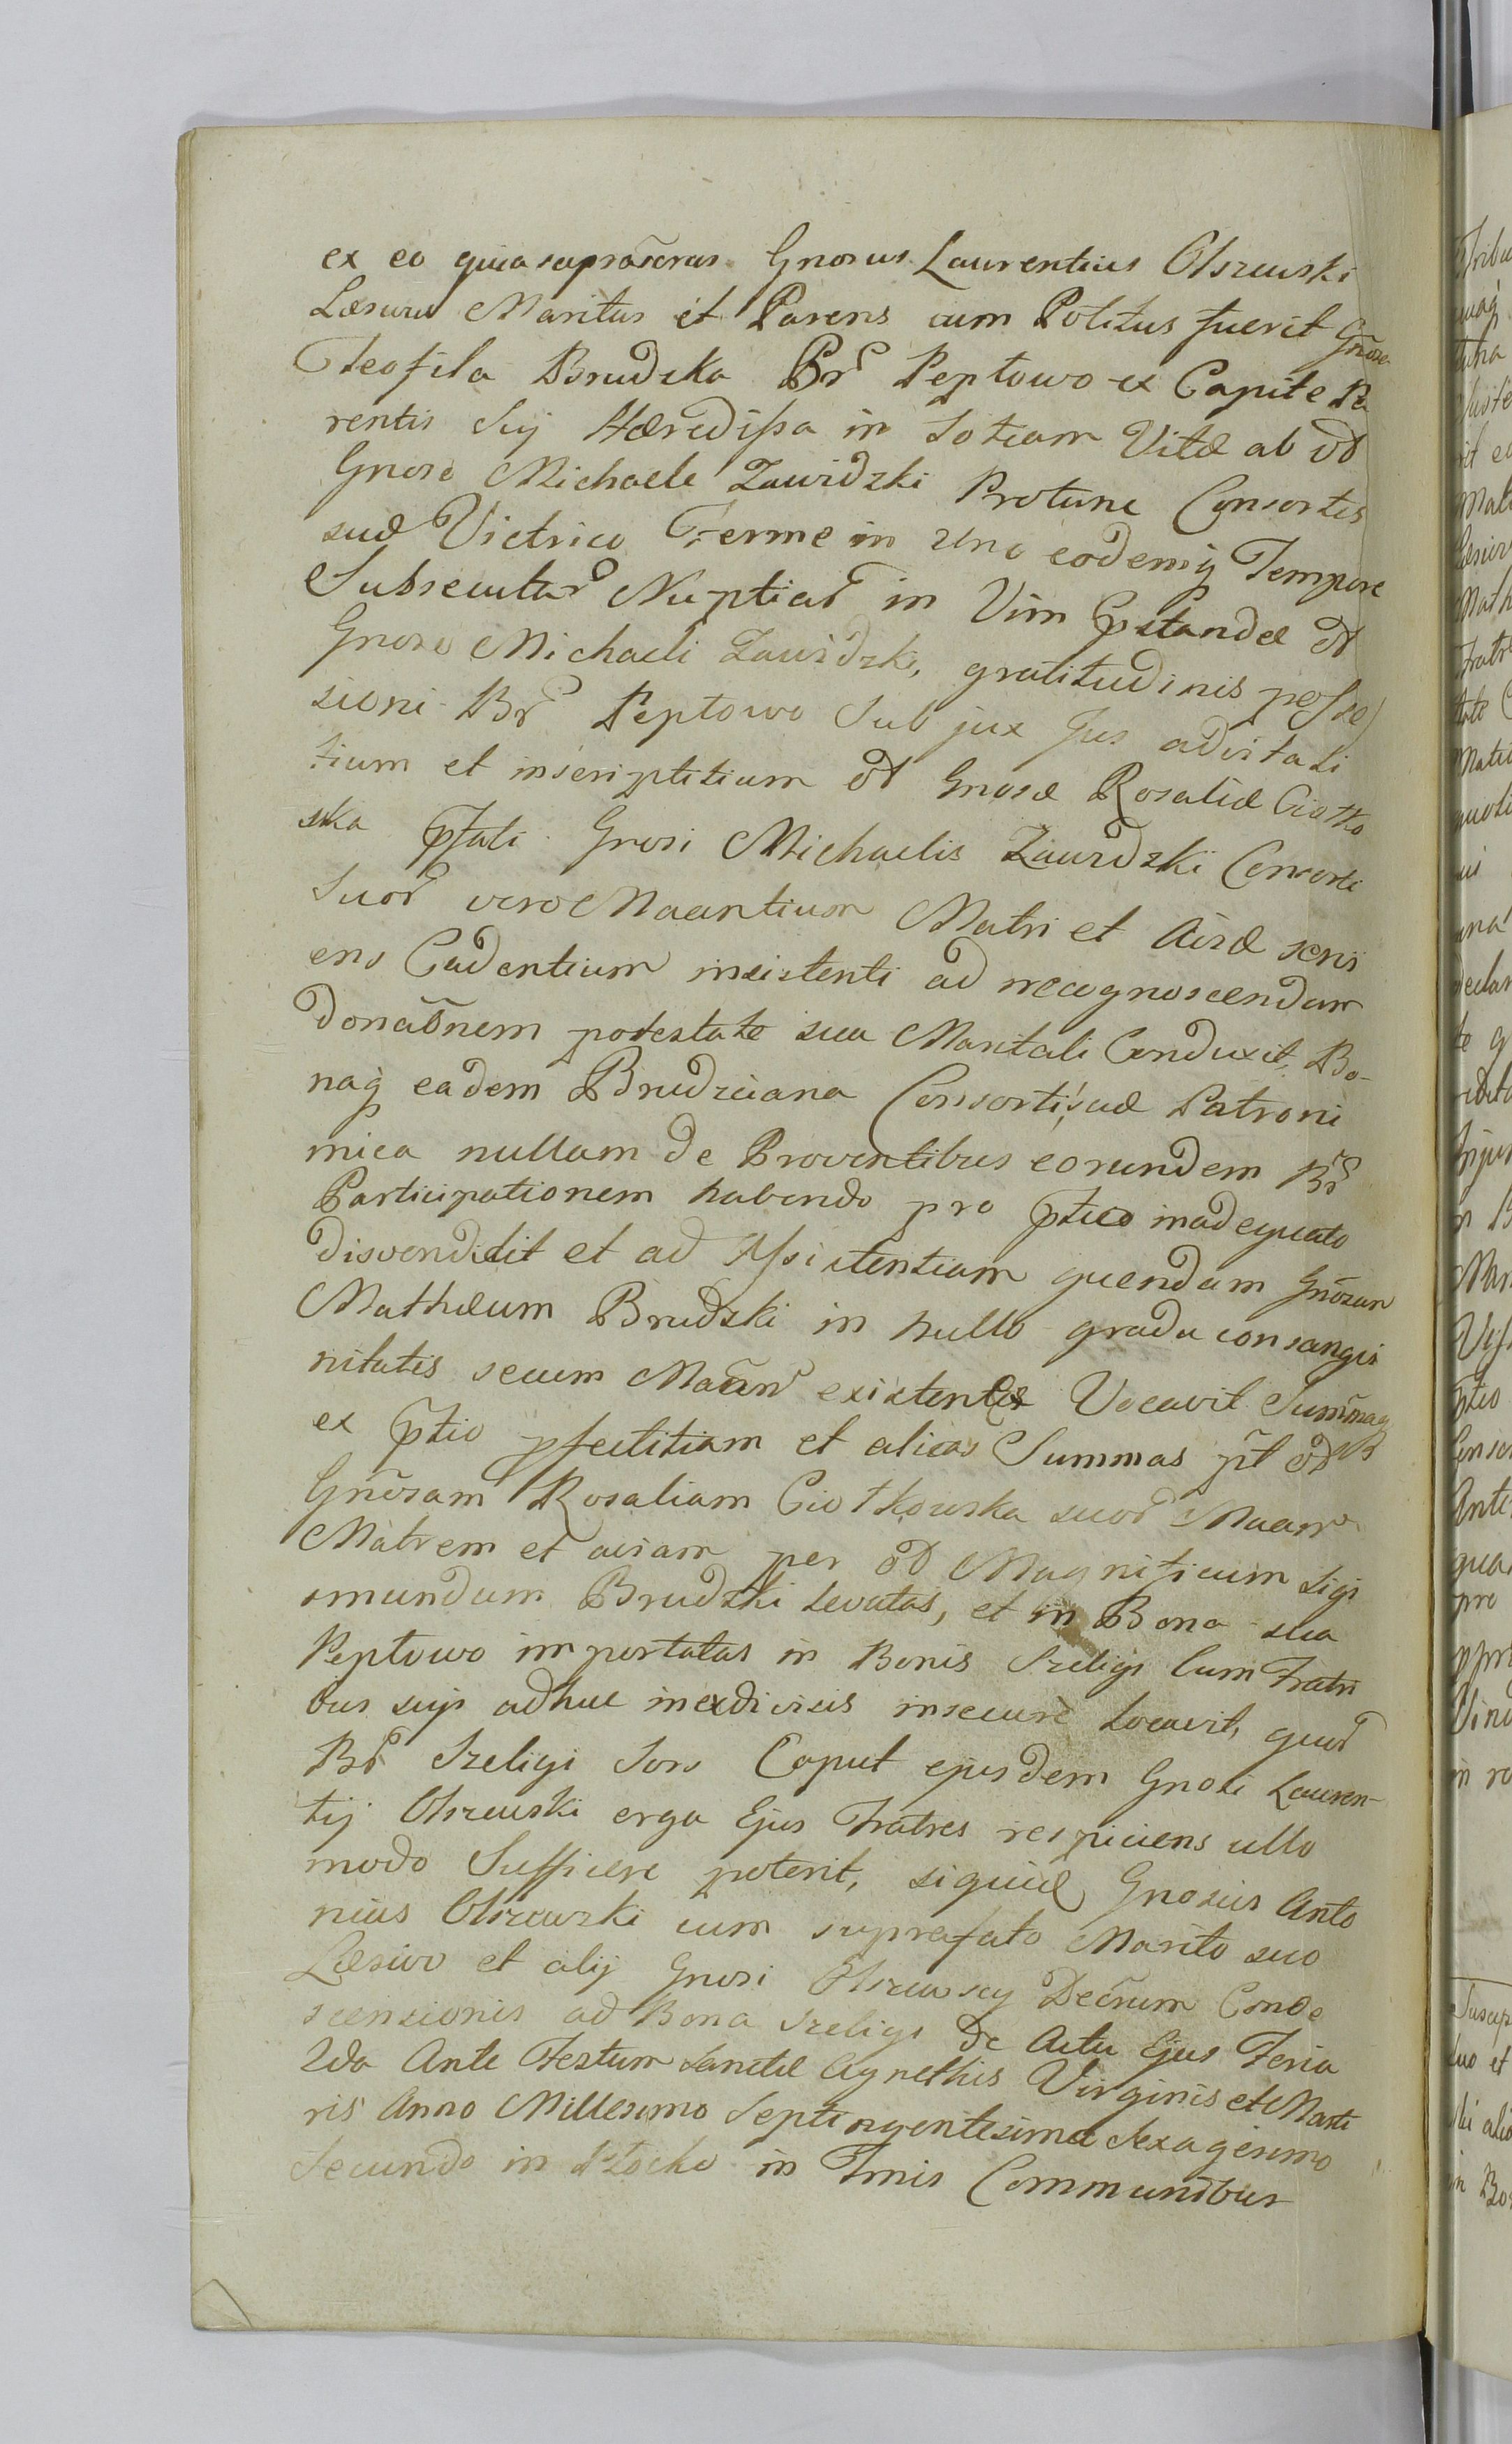 ex eo quia suprascrus Gnosus Laurentius Olszewski
Læsivus Maritus et Parens cum Potitus fuerit Gnosa
Teofila Brudzka Br Peptowo ex Capite Pa
rentis Sij Hæredissa in Sotiam Vitæ ab od
Gnoso Michaele Zawidzki Protunc Consortis
suæ Vietrico Ferme in Uno eodemq Tempore
Subsecutar Nuptiar in Vim pstandæ od
Gnoso Michaeli Zawidzki, gratitudinis posses
sioni Br Peptowo Sub jux Jus advitali
tium et inscriptitium od Gnosæ Rosaliæ Ciotko
ska pfati Gnosi Michaelis Zawidzki Consorti
Suor vero Maantium Matri et Aviæ seni
ens Cadentium insistenti ad recognoscendam
donaõnem potestate sua Maritali Conduxit, Bo-
naq eadem Brudziana Consorti suæ Patroni
mica nullam de Proventibus eorundem Br
Participationem habendo pro ptio inadequato
disvendidit et ad Assistentiam quendam Gnõsum
Mathæum Brudzki in nullo gradu consangvi
nitatis secum Maan existentem Vocavit Summaq
ex ptio pfectitiam et alias Summas pt od
Gnõsam Rosaliam Ciotkowska suor Maan
Matrem et aviam per od Magnificum Sigi
smundum Brudzki levatas, et in Bona sua
Peptowo importatas in Bonis Szeligi Cum Fratri
bus suis adhuc inexdivisis insecurè Locavit, quor
Br Szeligi Sors Caput ejusdem Gnosi Lauren-
tij Olszewski erga Ejus Fratres respiciens ullo
modo Sufficere poterit, siquid Gnosus Anto
nius Olszewski cum suprafato Marito suo
Læsivo et alij Gnosi Olszewscy Decrum Conde
scensionis ad Bona Szeligi de Actu Ejus Feria
2da Ante Festum Sanctæ Agnethis Virginis et Marti
ris Anno Millesimo Septingentesimo Sexagesimo
Secundo in Płocko in Tmis Communibus